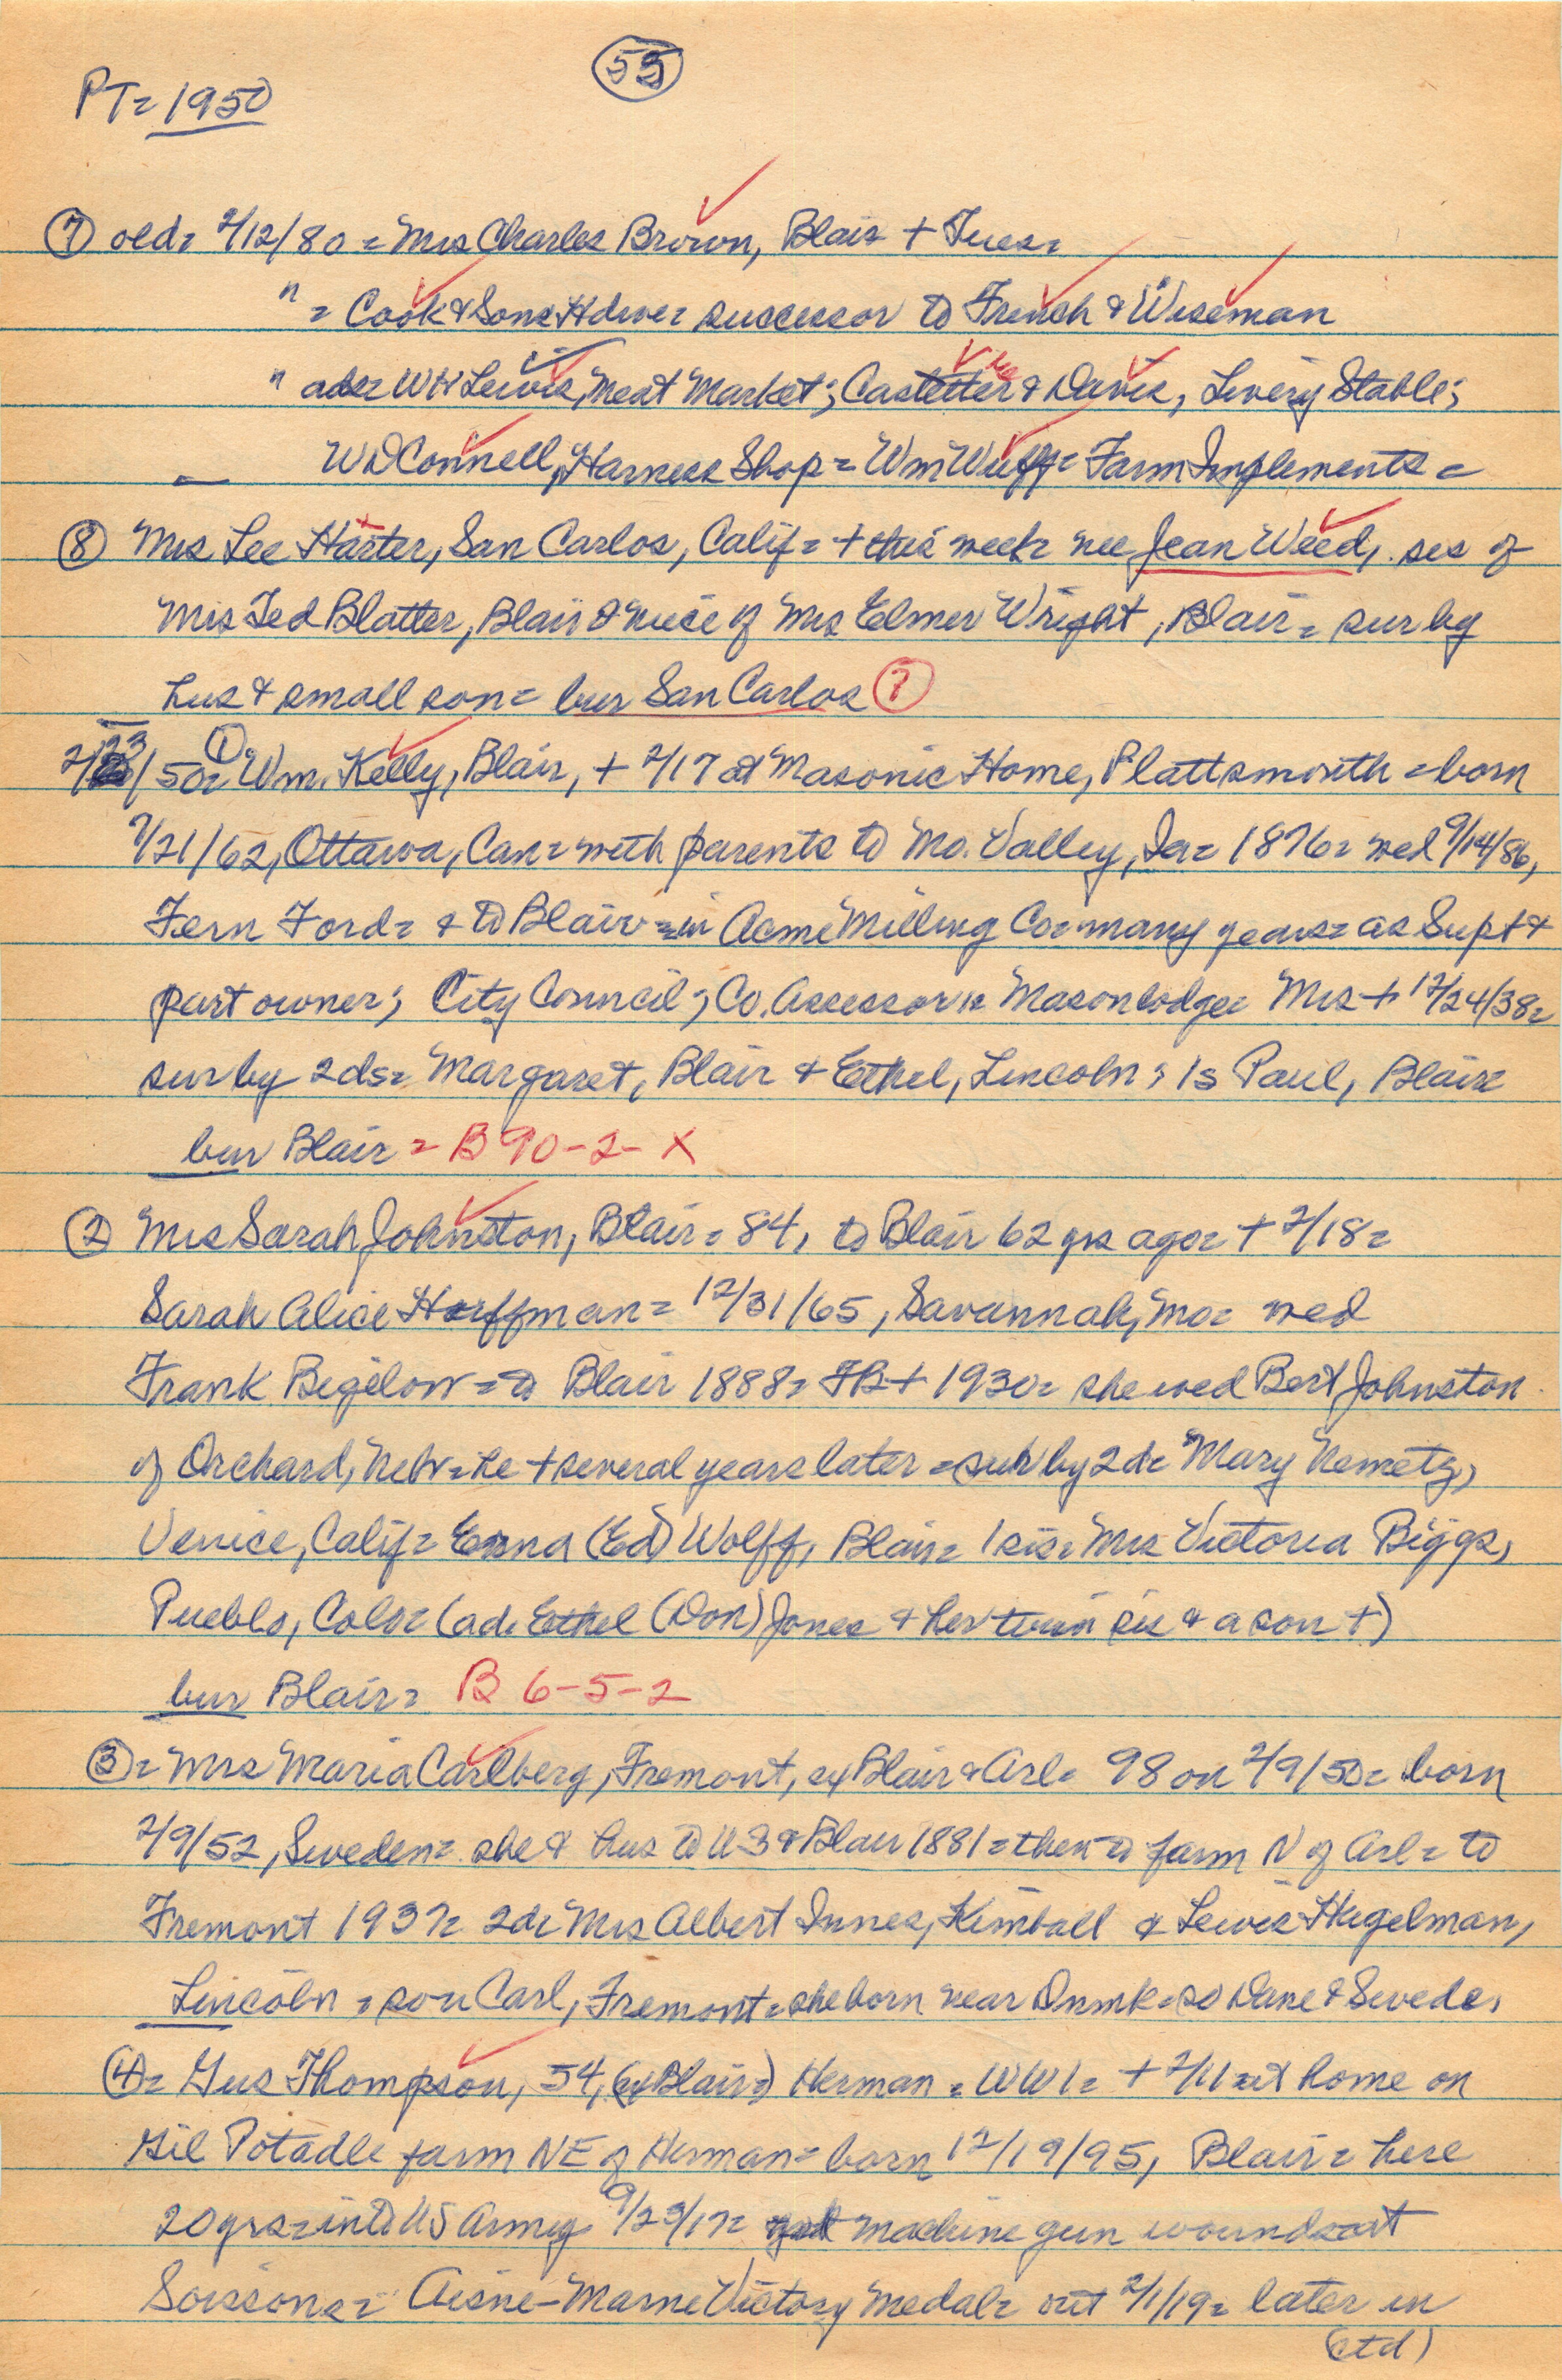 55
PT = 1950
7 old = 2/12/80 = Mrs Charles Brown, Blair + Tues =
" = Cook & Sons Hdwe = successor to French & Wiseman
" ads = WH Lewis, Meat Market; Castetter & Davis, Livery Stable;
WD Connell, Harness Shop = Wm Wulff = Farm Implements =
8 Mrs Lee Harter, San Carlos, Calif = + this week = nee Jean Weed, sis of
Mrs Ted Blatter, Blair & niece of Mrs Elmer Wright, Blair = sur by
hus & small son = bur San Carlos ?
2/23/50 = 1 Wm. Kelly, Blair, + 2/17 at Masonic Home, Plattsmouth = born
7/21/62, Ottawa, Can = with parents to Mo. Valley, Ia = 1876 = wed 9/14/86,
Fern Ford = & to Blair = in Acme Milling Co = many years = as Supt &
part owner; City Council; Co. Assessor = Mason lodge = Mrs + 12/24/38 =
sur by 2 ds = Margaret, Blair & Ethel, Lincoln; 1s Paul, Blair =
bur Blair = B 90-2-X
2 Mrs Sarah Johnston, Blair = 84, to Blair 62 yrs ago = + 2/18 =
Sarah Alice Horffman = 12/31/65, Savannah, Mo = wed
Frank Bigelow = to Blair 1888 = FB + 1930 = she wed Bert Johnston
of Orchard, Nebr = he + several years later = sur by 2 d = Mary Nemetz,
Venice, Calif = Erna (Ed) Wolff, Blair = 1 sis = Mrs Victoria Biggs,
Pueblo, Colo = (ad. Ethel (Don) Jones & her twin sis & a son +)
bur Blair = B 6-5-2
3 = Mrs Maria Carlberg, Fremont, ex Blair & Arl = 98 on 2/9/50 = born
2/9/52, Sweden = she & hus to US & Blair 1881 = then to farm N of Arl = to
Fremont 1937 = 2 d = Mrs Albert Innes, Kimball & Lewis Hugelman,
Lincoln = son Carl, Fremont = she born near Dnmk = so Dane & Swede,
4 = Gus Thompson, 54, (ex Blair =) Herman = WW1 = + 2/11 at home on
Gil Potadle farm NE of Herman = born 12/19/95, Blair = here
20 yrs = into US Army 9/23/17 = machine gun wounds at
Soissons = Aisne-Marne Victory Medal = out 2/1/19 = later in
(ctd)